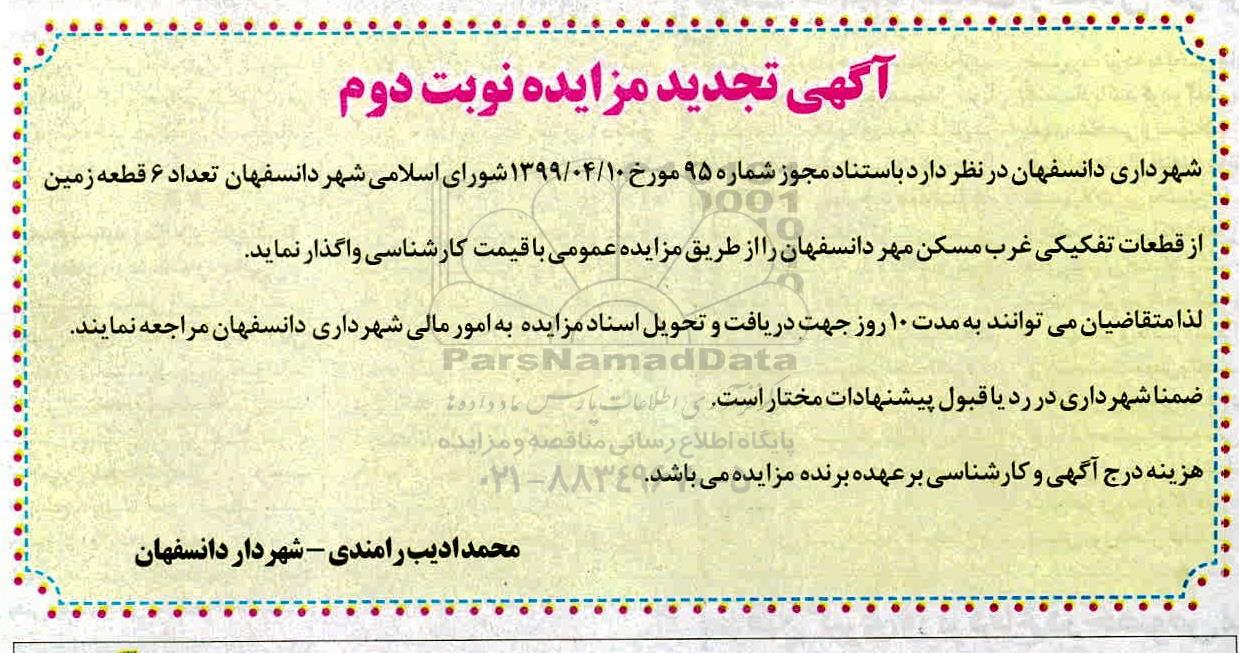 آگهی تجدید مزایده نوبت دوم
شهرداری دانسفهان در نظر دارد باستناد مجوز شماره ۹۵ مورخ ۱۳۹۹/۰۴/۱۰ شورای اسلامی شهر دانسفهان تعداد ۶ قطعه زمین
از قطعات تفکیکی غرب مسکن مهر دانسفهان را از طریق مزایده عمومی با قیمت کارشناسی واگذار نماید.
لذا متقاضیان می توانند به مدت ۱۰ روز جهت دریافت و تحویل اسناد مزایده به امور مالی شهرداری دانسفهان مراجعه نمایند.
ParsNamadData
ضمنا شهرداری در رد یا قبول پیشنهادات مختار است.
پایگاه اطلاع رسانی مناقصه و مزایده
هزینه درج آگهی و کارشناسی بر عهده برنده مزایده می باشد.
محمد ادیب رامندی - شهردار دانسفهان